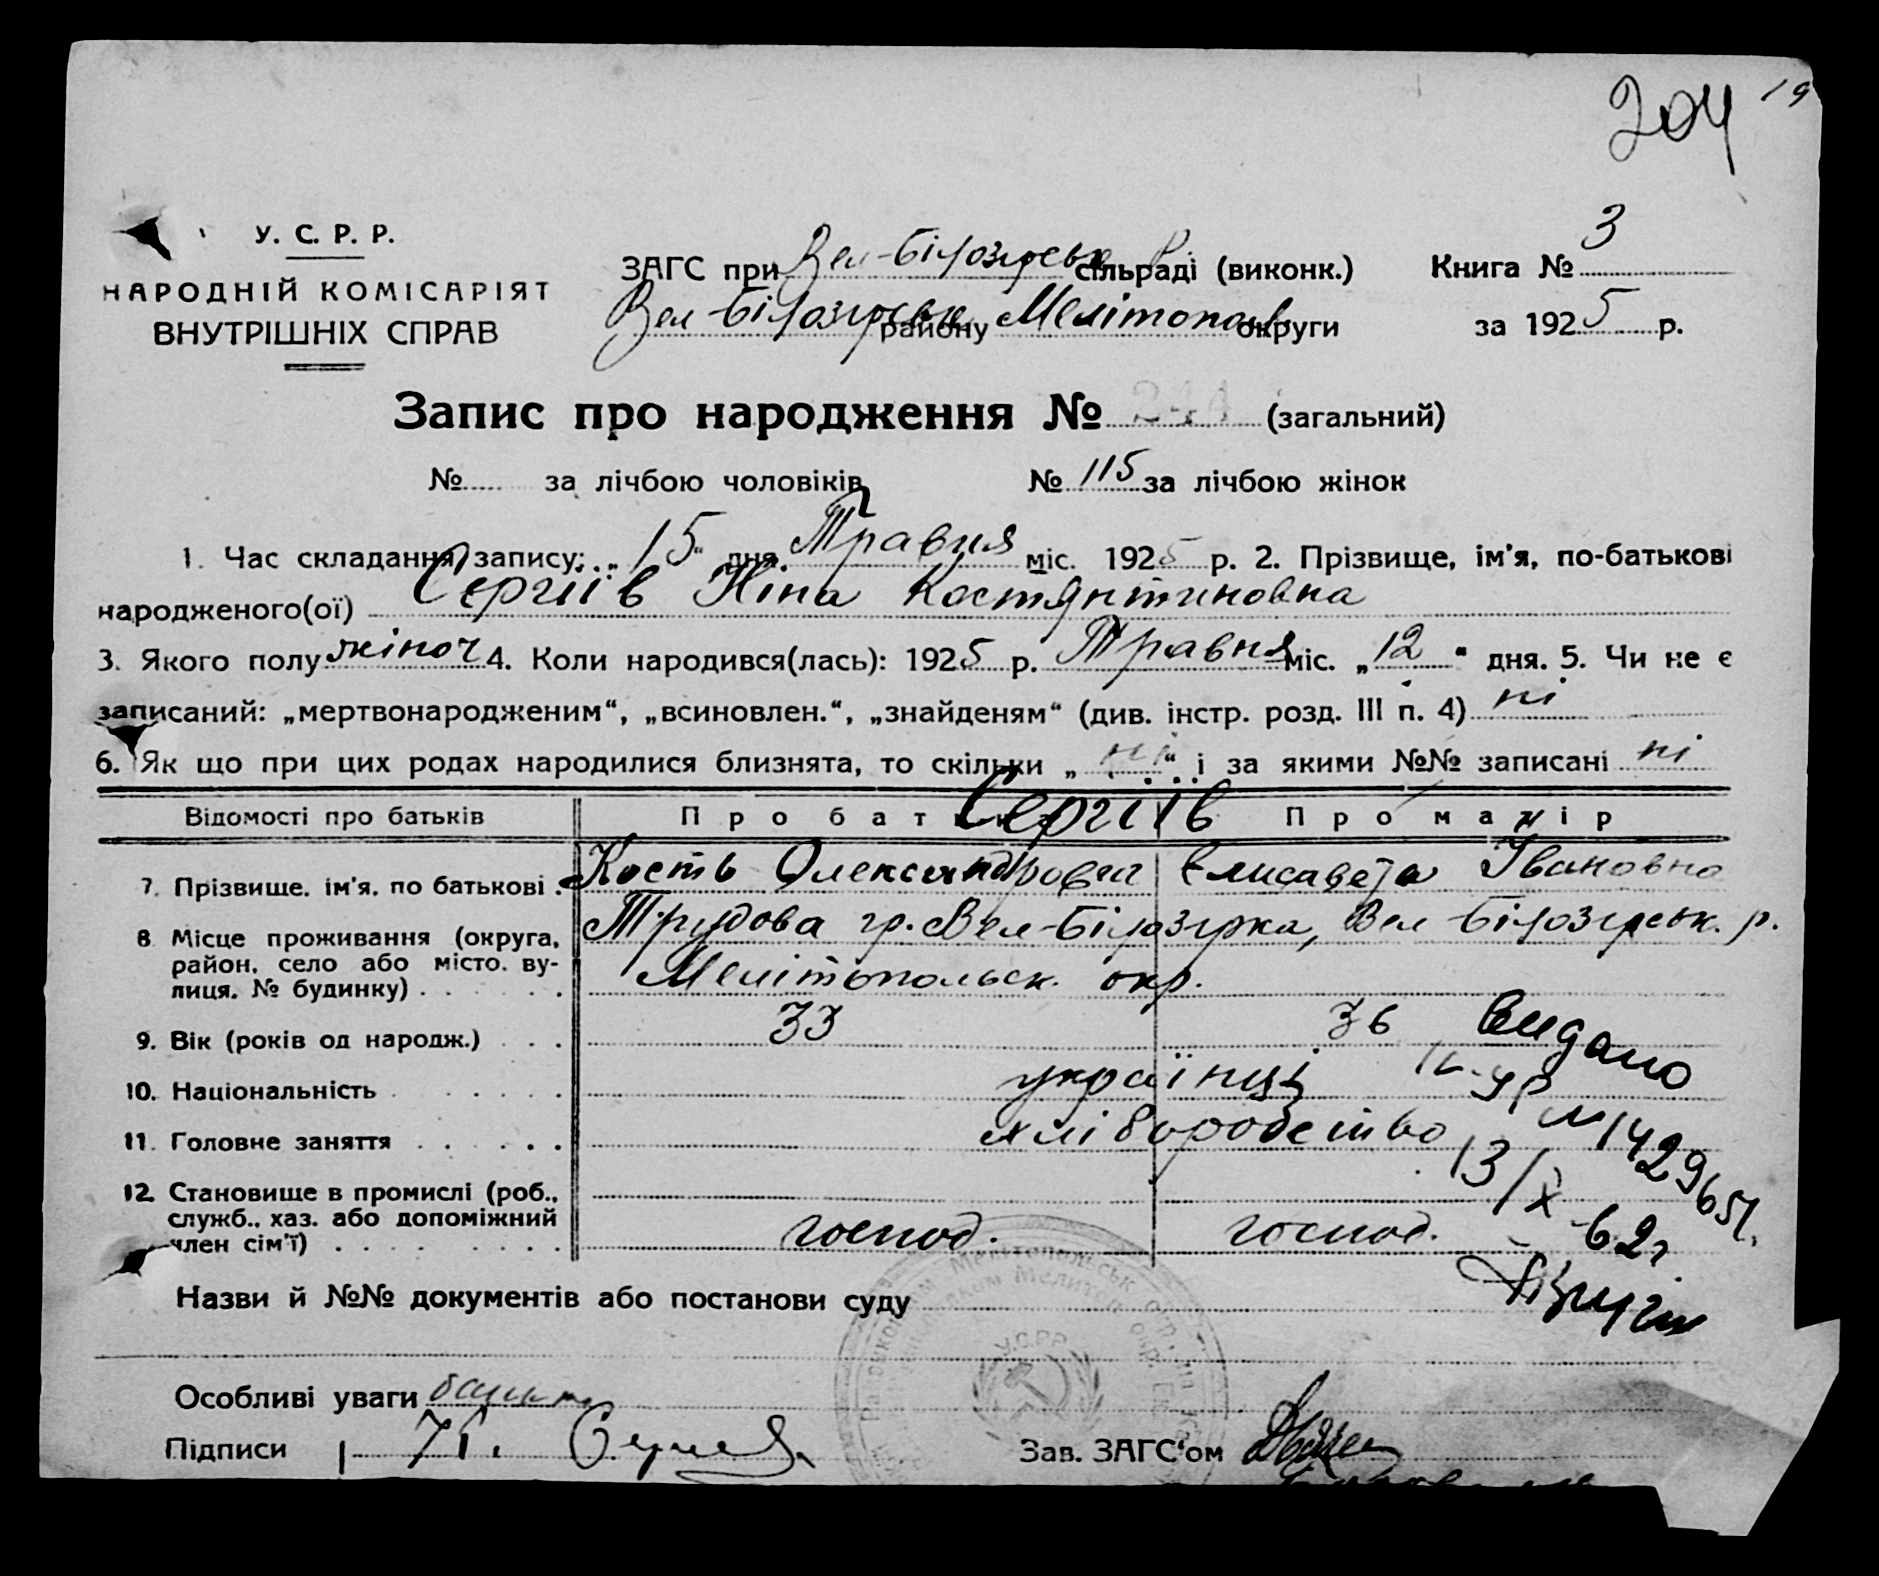 204 19
У. С. Р. Р.
НАРОДНІЙ КОМІСАРІЯТ
ВНУТРІШНІХ СПРАВ
ЗАГС при Вел-Білозірськ сільраді (виконк.) Книга № 3
Вел-Білозірськ району Мелітопол округи за 1925 р.
Запис про народження № 244 (загальний)
№ за лічбою чоловіків № 115 за лічбою жінок
1. Час складання запису: „15“ дня Травня міс. 1925 р. 2. Прізвище, ім'я, по-батькові
народженого(ої) Сергіїв Ніна Костянтиновна
3. Якого полу жіноч 4. Коли народився(лась): 1925 р. Травня міс. „12“ дня. 5. Чи не є
записаний: „мертвонародженим“, „всиновлен.“, „знайденям“ (див. інстр. розд. III п. 4) ні
6. Як що при цих родах народилися близнята, то скільки „ні“ і за якими №№ записані ні
Відомості про батьків Про батька Про матір
Сергіїв
7. Прізвище, ім'я, по батькові . Кость Олександрович Єлисавета Івановна
8 Місце проживання (округа, район, село або місто, вулиця, № будинку) . . . . . Трудова гр. Вел-Білозірка, Вел Білозірськ. р.
Мелітопольськ. окр.
9. Вік (років од народж.) . . . 33 36
10. Національність . . . . . . українці
11. Головне заняття . . . . . . хліборобство
12. Становище в промислі (роб., служб., хаз. або допоміжний член сім'ї) . . . . . . господ. господ.
видано
№ 1429651.
13/X-62г
Назви й №№ документів або постанови суду
У.С.Р.Р.
Особливі уваги
Підписи К. Зав. ЗАГС'ом